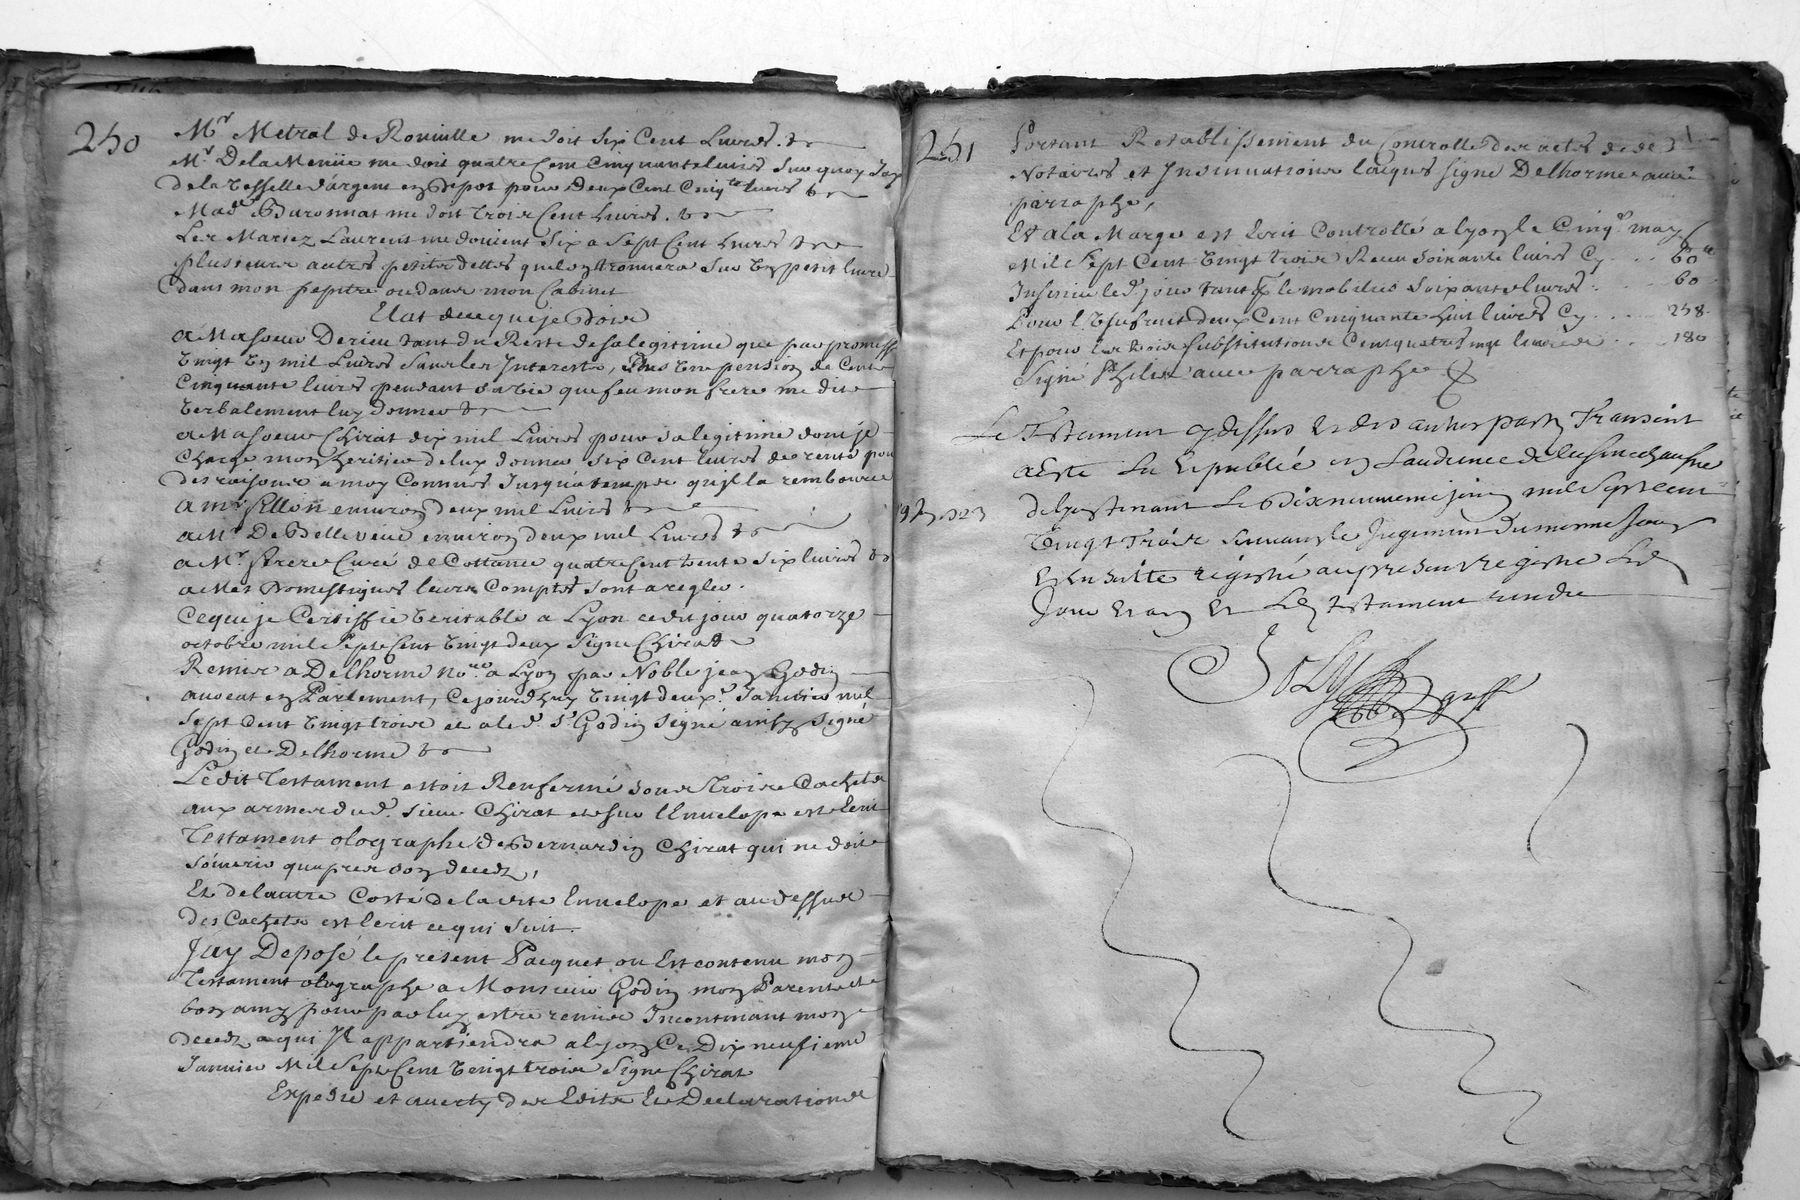 250
Mr Metral de Rouville me doit six Cent Livres.
Mr De la Menüe me doit quatre Cent Cinquante livres sur quoy J'ay
de la Vesselle d'argent en Depot pour Deux Cent Cinq.te livres
Made Baronnat me doit trois Cent Livres.
Les Mariez Laurent me doivent six a sept Cent livres
plusieurs autres petites dettes que l'on trouvera sur Un petit livre
dans mon pupitre ou dans mon Cabinet
Etat de ce que je Dois
a Ma soeur Derieu tant du Reste de sa legitime que par promesse
Vingt Un mil Livres sans les Interests, Plus Une pension de Cent
Cinquante livres pendant sa vie que feu mon frere me dit
Verbalement luy donner
a Ma soeur Chirat dix mil Livres pour sa legitime dont je
Charge mon heritier de luy donner six Cent livres de rente pour
des raisons a moy Connues Jusqu'a temps qu'il la rembource
a mr Sellon environ deux mil Livres
a Mr De Belleveüe environ deux mil Livres
a Mr frere Curé de Cottance quatre Cent trente six livres
a Mes Domestiques leurs Comptes sont a regler.
Ce que je Certiffie Veritable a Lyon cedit jour quatorze
octobre mil sept Cent Vingt deux Signe Chirat
Remis a Delhorme No.re a Lyon par Noble jean Godin
avocat en Parlement, Cejourdhuy Vingt deux.e Janvier mil
sept Cent Vingt trois et a led. Sr Godin signé ainsy signé
Godin et Delhorme
Ledit Testament estoit Renfermé sous trois Cachets
aux armes dud. sieur Chirat et sur l'Envelope est Ecrit
Testament olographe de Bernardin Chirat qui ne doit
s'ouvrir qu'apres son deceds,
Et de l'autre Costé de ladite Envelope et au dessus
des Cachets est Ecrit ce qui suit.
J'ay Deposé le present Pacquet ou Est contenu mon
Testament olographe a Monsieur Godin mon Parent et
bon amy pour par luy estre remis Incontinant mon
deceds a qui Jl appartiendra a lyon Ce Dix neufieme
Janvier Mil Sept Cent Vingt trois Signe Chirat
Expedie et averty des Edits Et Declarations
251
Portant Retablissement du Controlle des actes de
Notaires et Insinuations laiques signe Delhorme avec
parraphe,
Et a la Marge est Ecrit Controllé a lyon le Cinq.e may
Mil Sept Cent Vingt trois Receu soixante livres Cy . . . 60
Insinué led. jour tant p le mobilier soixante livres . . . 60
Pour l'Usufruit deux Cent Cinquante huit livres Cy . . . 258
Et pour les trois substitutions Cent quatre vingt livres . . . 180
Signé Philis avec parraphe
Le Testament cy dessus Et des autres parts Transcrit
a Esté Lu Et publié en L'audience de la senechaussée
19 Jn 1723
de Lyon tenant Le Dix neuvieme juin mil sept cent
Vingt Trois suivant le Jugement du meme Jour
Et Ensuite régistré au present registre Led
Jour Et an Et Led testament rendu
Joly
greff